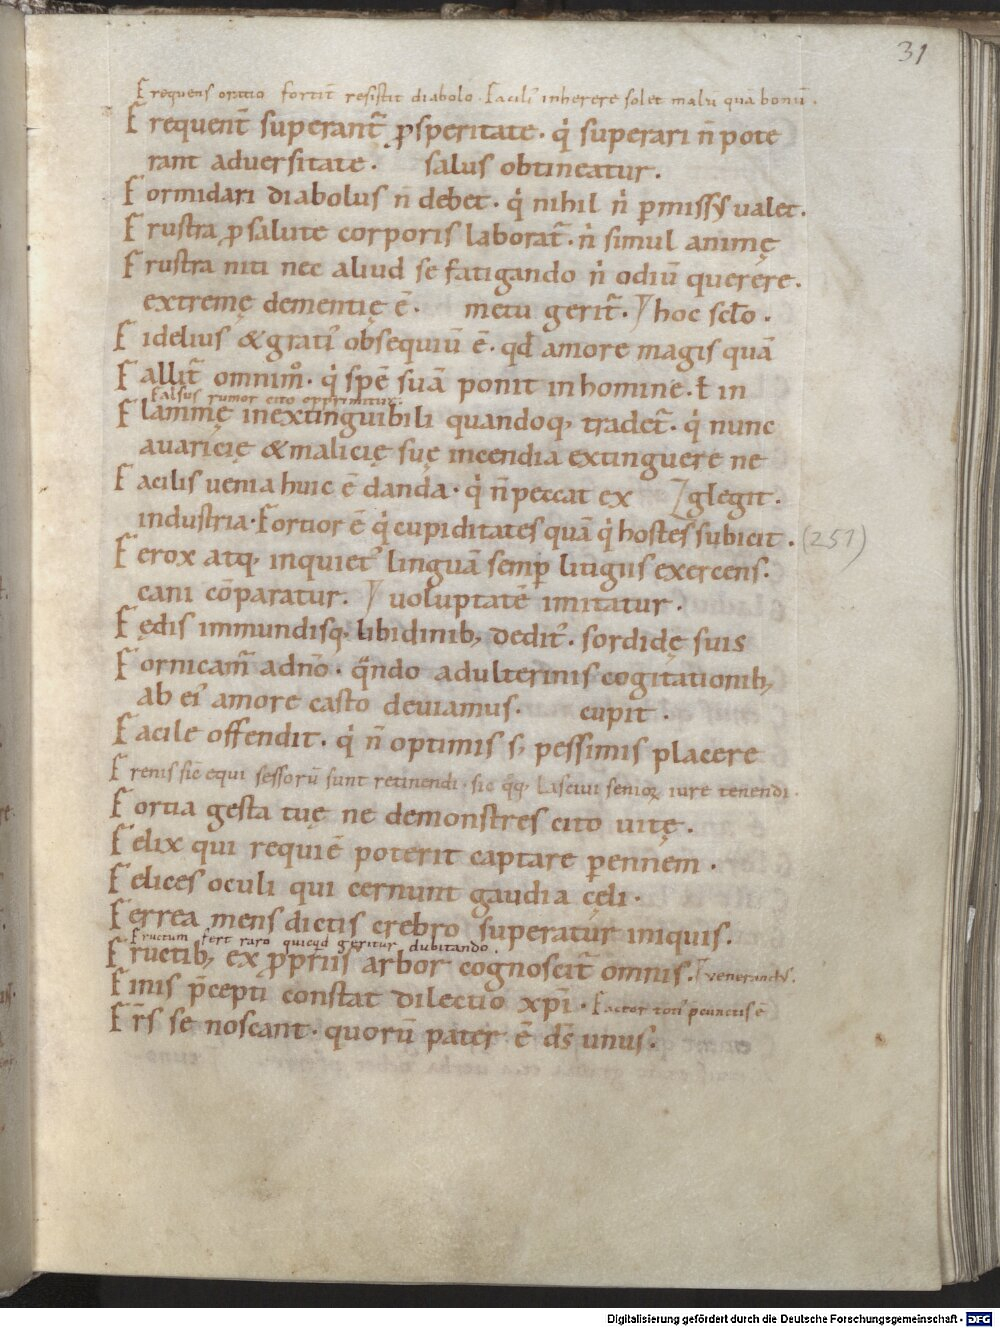 31
Frequens oratio fortit̄ resistit diabolo. Facili᾽ inherere solet malū quā bonū.
Frequent̄ superant᷑ ꝓsperitate. q̇ superari n̄ pote
rant adversitate. salus obtineatur.
Formidari diabolus n̄ debet. q̇ nihil n̓ ꝑmissus ualet.
Frustra ꝓ salute corporis laborat᷑. n̓ simul animę
Frustra niti nec aliud se fatigando n̓ odiū querere.
extremę dementię ē. metu gerit᷑. hoc sc̄lo.
Fidelius & grati᾽ obsequiū ē. qđ amore magis quā
Fallit᷑ omnimͦ. q̇ spē suā ponit in homine. ł in
Falsus rumor cito opprimitur.
Flammę inextinguibili quandoq; tradet᷑. q̇ nunc
avaricię & malicię suę incendia extinguere ne
Facilis uenia huic ē danda. q̇ n̄ peccat ex glegit.
industria. Fortior ē q̇ cupiditates quā q̇ hostes subicit. (251)
Ferox atq; inquiet᾽ linguā semꝑ litigiis exercens.
cani cōparatur. uoluptatē imitatur.
Fędis immundisq; libidinib; dedit᾽. sordidę suis
Fornicam̄ a dn̄o. qn̄do adulterinis cogitationib;
ab ei᾽ amore casto deuiamus. cupit.
Facile offendit. q̇ n̄ optimis s; pessimis placere
Frenis sic̄ equi sessorū sunt retinendi. sic q̄q; lasciui senioꝝ iure tenendi.
Fortia gesta tuę ne demonstres cito uitę.
Felix qui requiē poterit captare ꝑennem.
Felices oculi qui cernunt gaudia cęli.
Ferrea mens dictis crebro superatur iniquis.
Fructum fert raro quicqd geritur dubitando.
Fructib; ex ꝓpriis arbor cognoscit᷑ omnis. venerand᾽.
Finis p̄cepti constat dilectio xp̄i. Factor toti᾽ p̄cunctis ē
Fr̄s se noscant. quorū pater ē ds̄ unus.
Digitalisierung gefördert durch die Deutsche Forschungsgemeinschaft - DFG